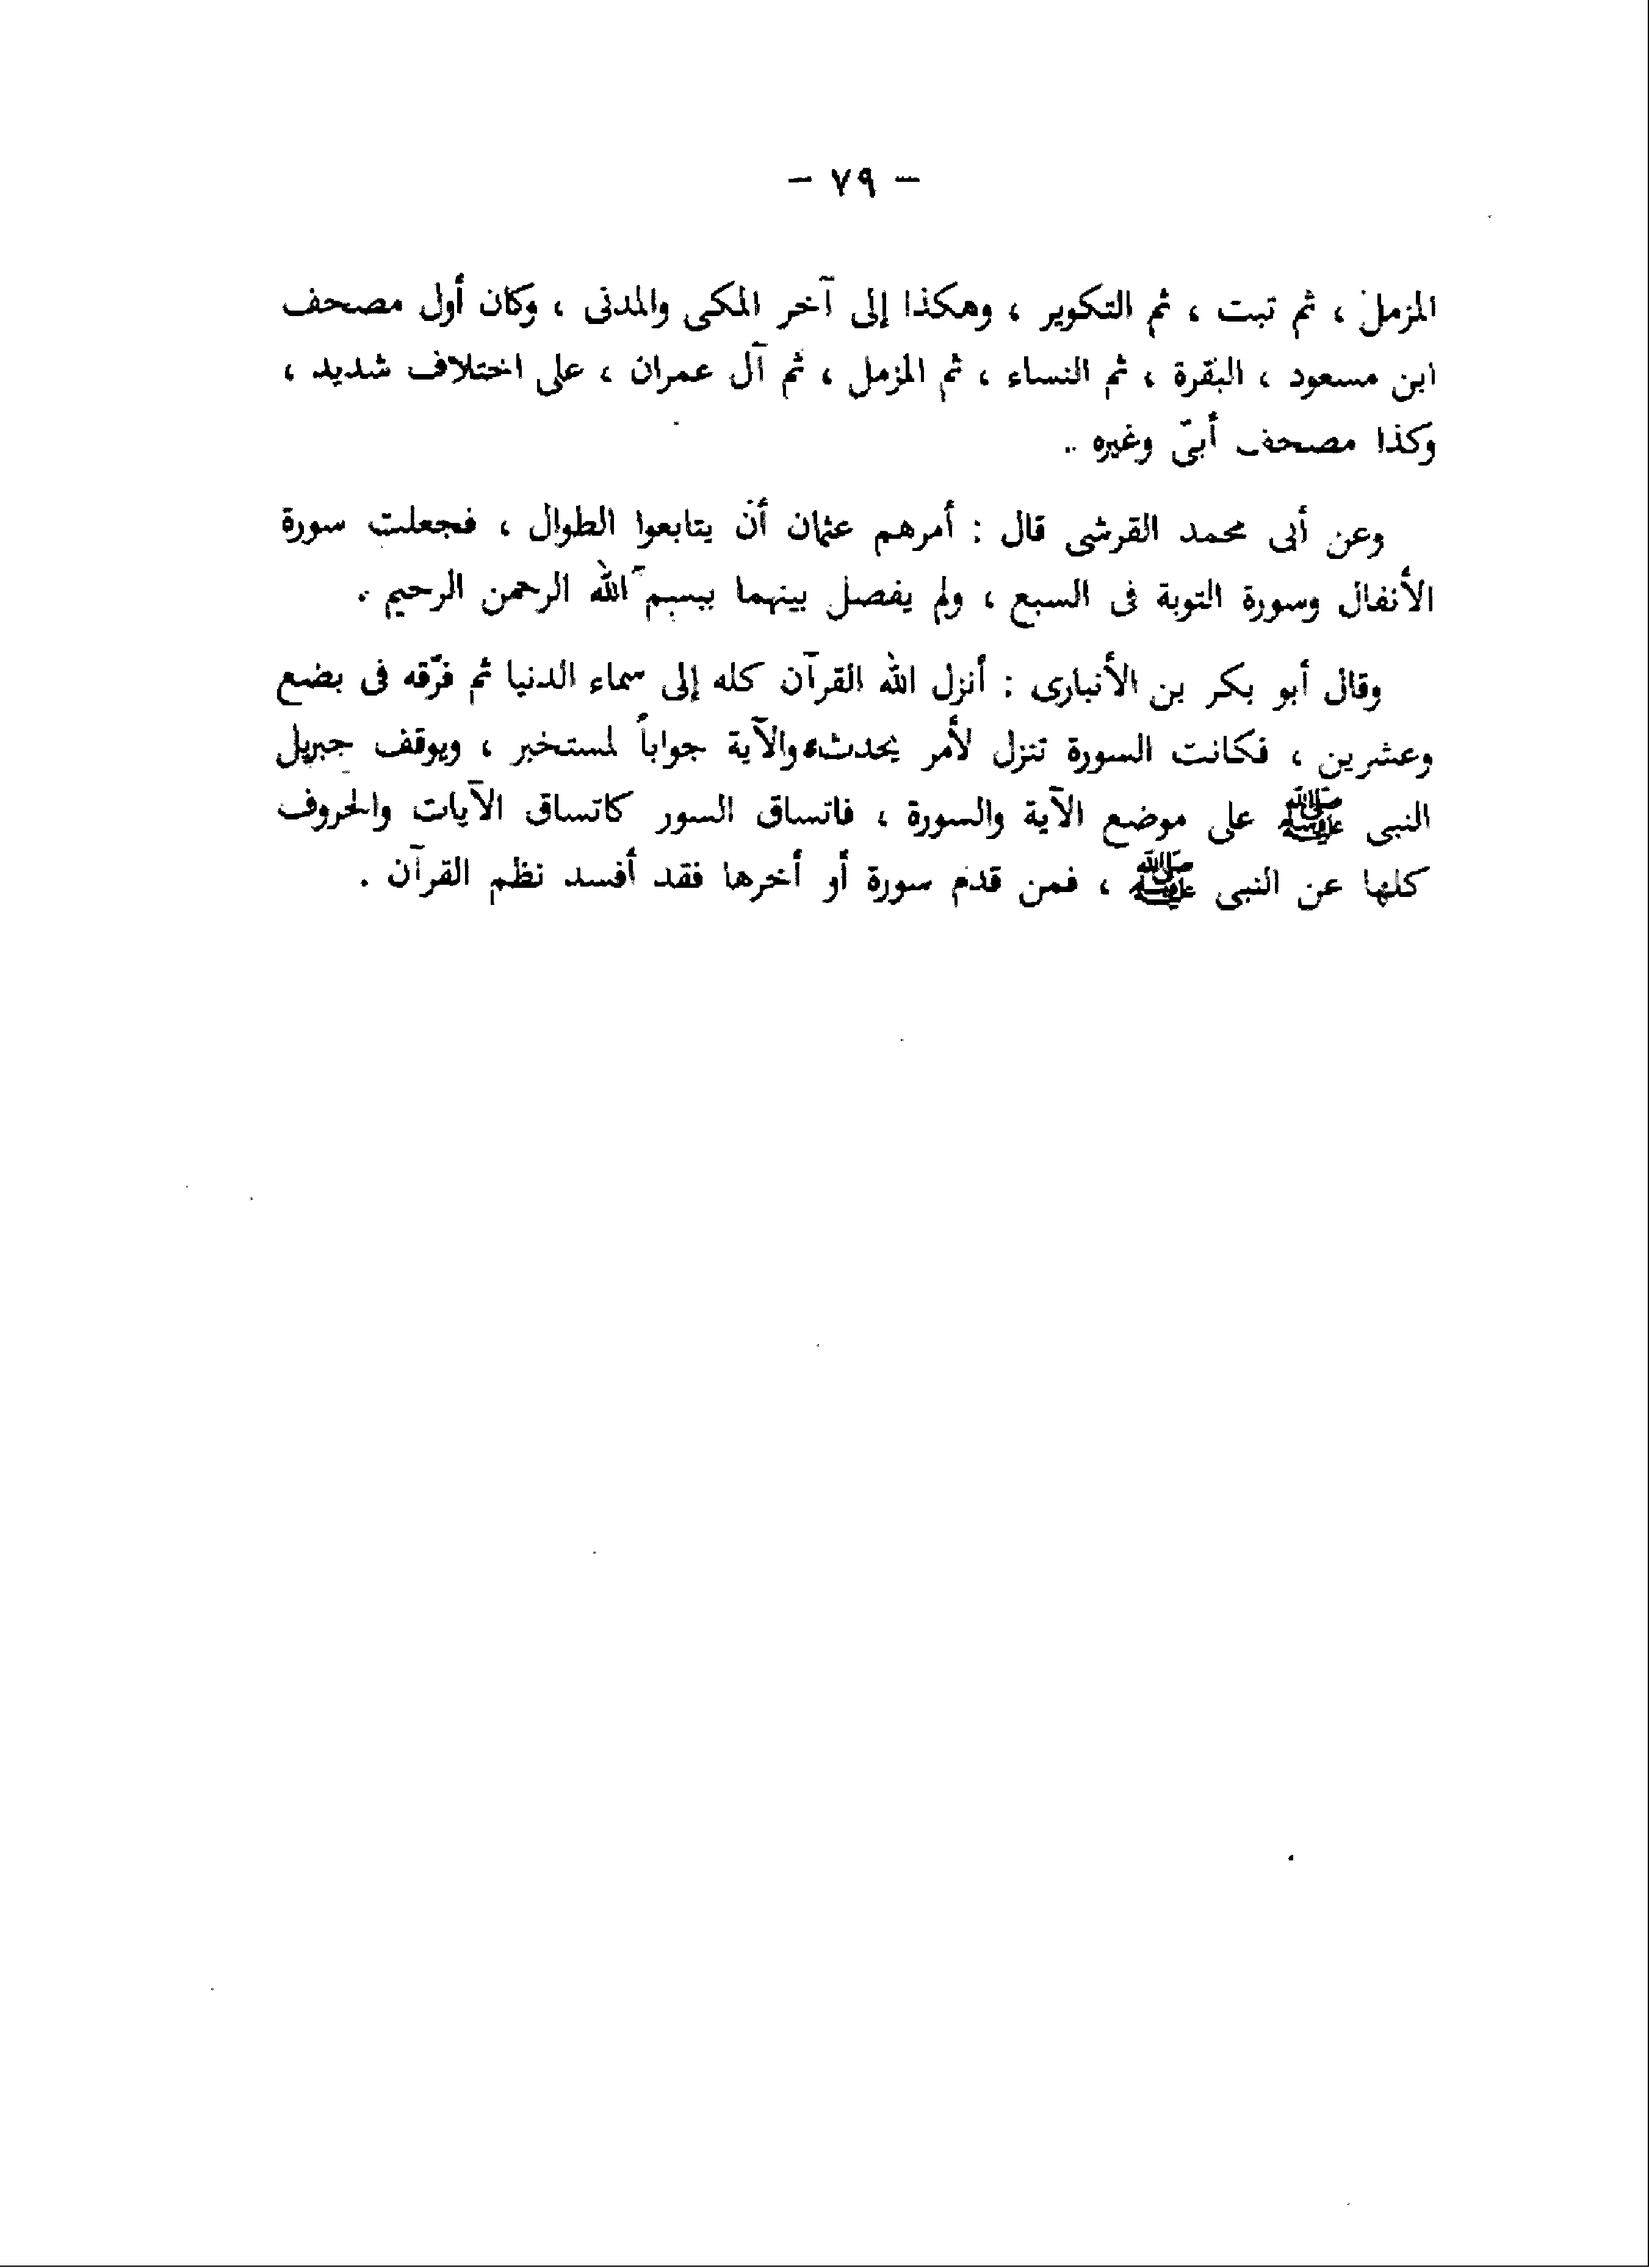 — ٧٩ —
المزمل ، ثم تبت ، ثم التكوير ، وهكذا إلى آخر المكى والمدنى ، وكان أول مصحف
ابن مسعود ، البقرة ، ثم النساء ، ثم المزمل ، ثم آل عمران ، على اختلاف شديد ،
وكذا مصحف أبىّ وغيره ..
وعن أبى محمد القرشى قال : أمرهم عثمان أن يتابعوا الطوال ، فجعلت سورة
الأنفال وسورة التوبة فى السبع ، ولم يفصل بينهما ببسم الله الرحمن الرحيم .
وقال أبو بكر بن الأنبارى : أنزل الله القرآن كله إلى سماء الدنيا ثم فرّقه فى بضع
وعشرين ، فكانت السورة تنزل لأمر يحدث، والآية جواباً لمستخبر ، ويوقف جبريل
النبى ﷺ على موضع الآية والسورة ، فاتساق السور كاتساق الآيات والحروف
كلها عن النبى ﷺ ، فمن قدم سورة أو أخرها فقد أفسد نظم القرآن .